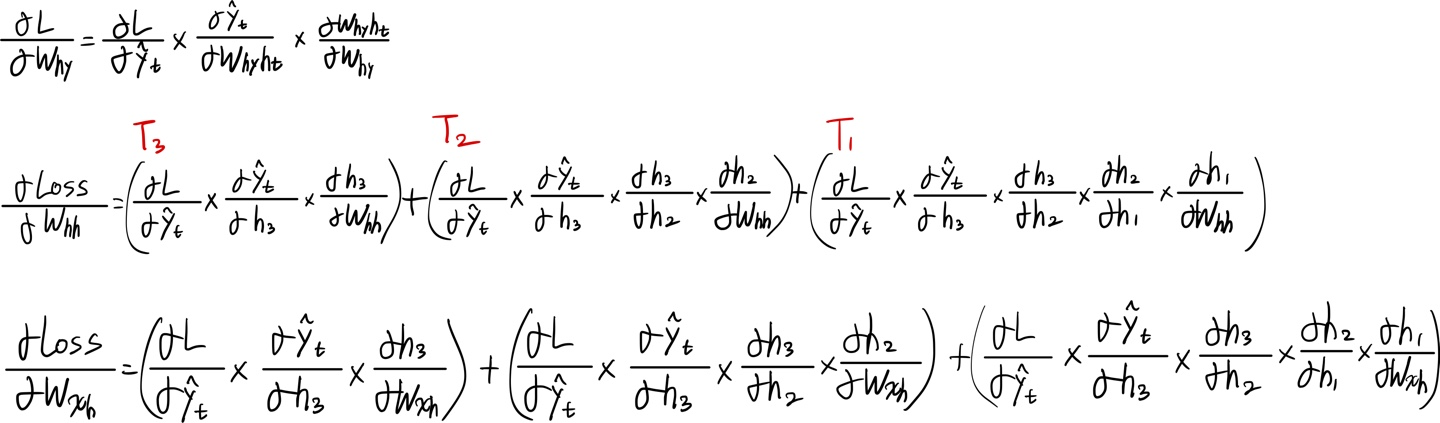 ∂L/∂W_hy = ∂L/∂ŷ_t × ∂ŷ_t/∂W_hy h_t × ∂W_hy h_t/∂W_hy
T₃ T₂ T₁
∂Loss/∂W_hh = (∂L/∂ŷ_t × ∂ŷ_t/∂h₃ × ∂h₃/∂W_hh) + (∂L/∂ŷ_t × ∂ŷ_t/∂h₃ × ∂h₃/∂h₂ × ∂h₂/∂W_hh) + (∂L/∂ŷ_t × ∂ŷ_t/∂h₃ × ∂h₃/∂h₂ × ∂h₂/∂h₁ × ∂h₁/∂W_hh)
∂Loss/∂W_xh = (∂L/∂ŷ_t × ∂ŷ_t/∂h₃ × ∂h₃/∂W_xh) + (∂L/∂ŷ_t × ∂ŷ_t/∂h₃ × ∂h₃/∂h₂ × ∂h₂/∂W_xh) + (∂L/∂ŷ_t × ∂ŷ_t/∂h₃ × ∂h₃/∂h₂ × ∂h₂/∂h₁ × ∂h₁/∂W_xh)